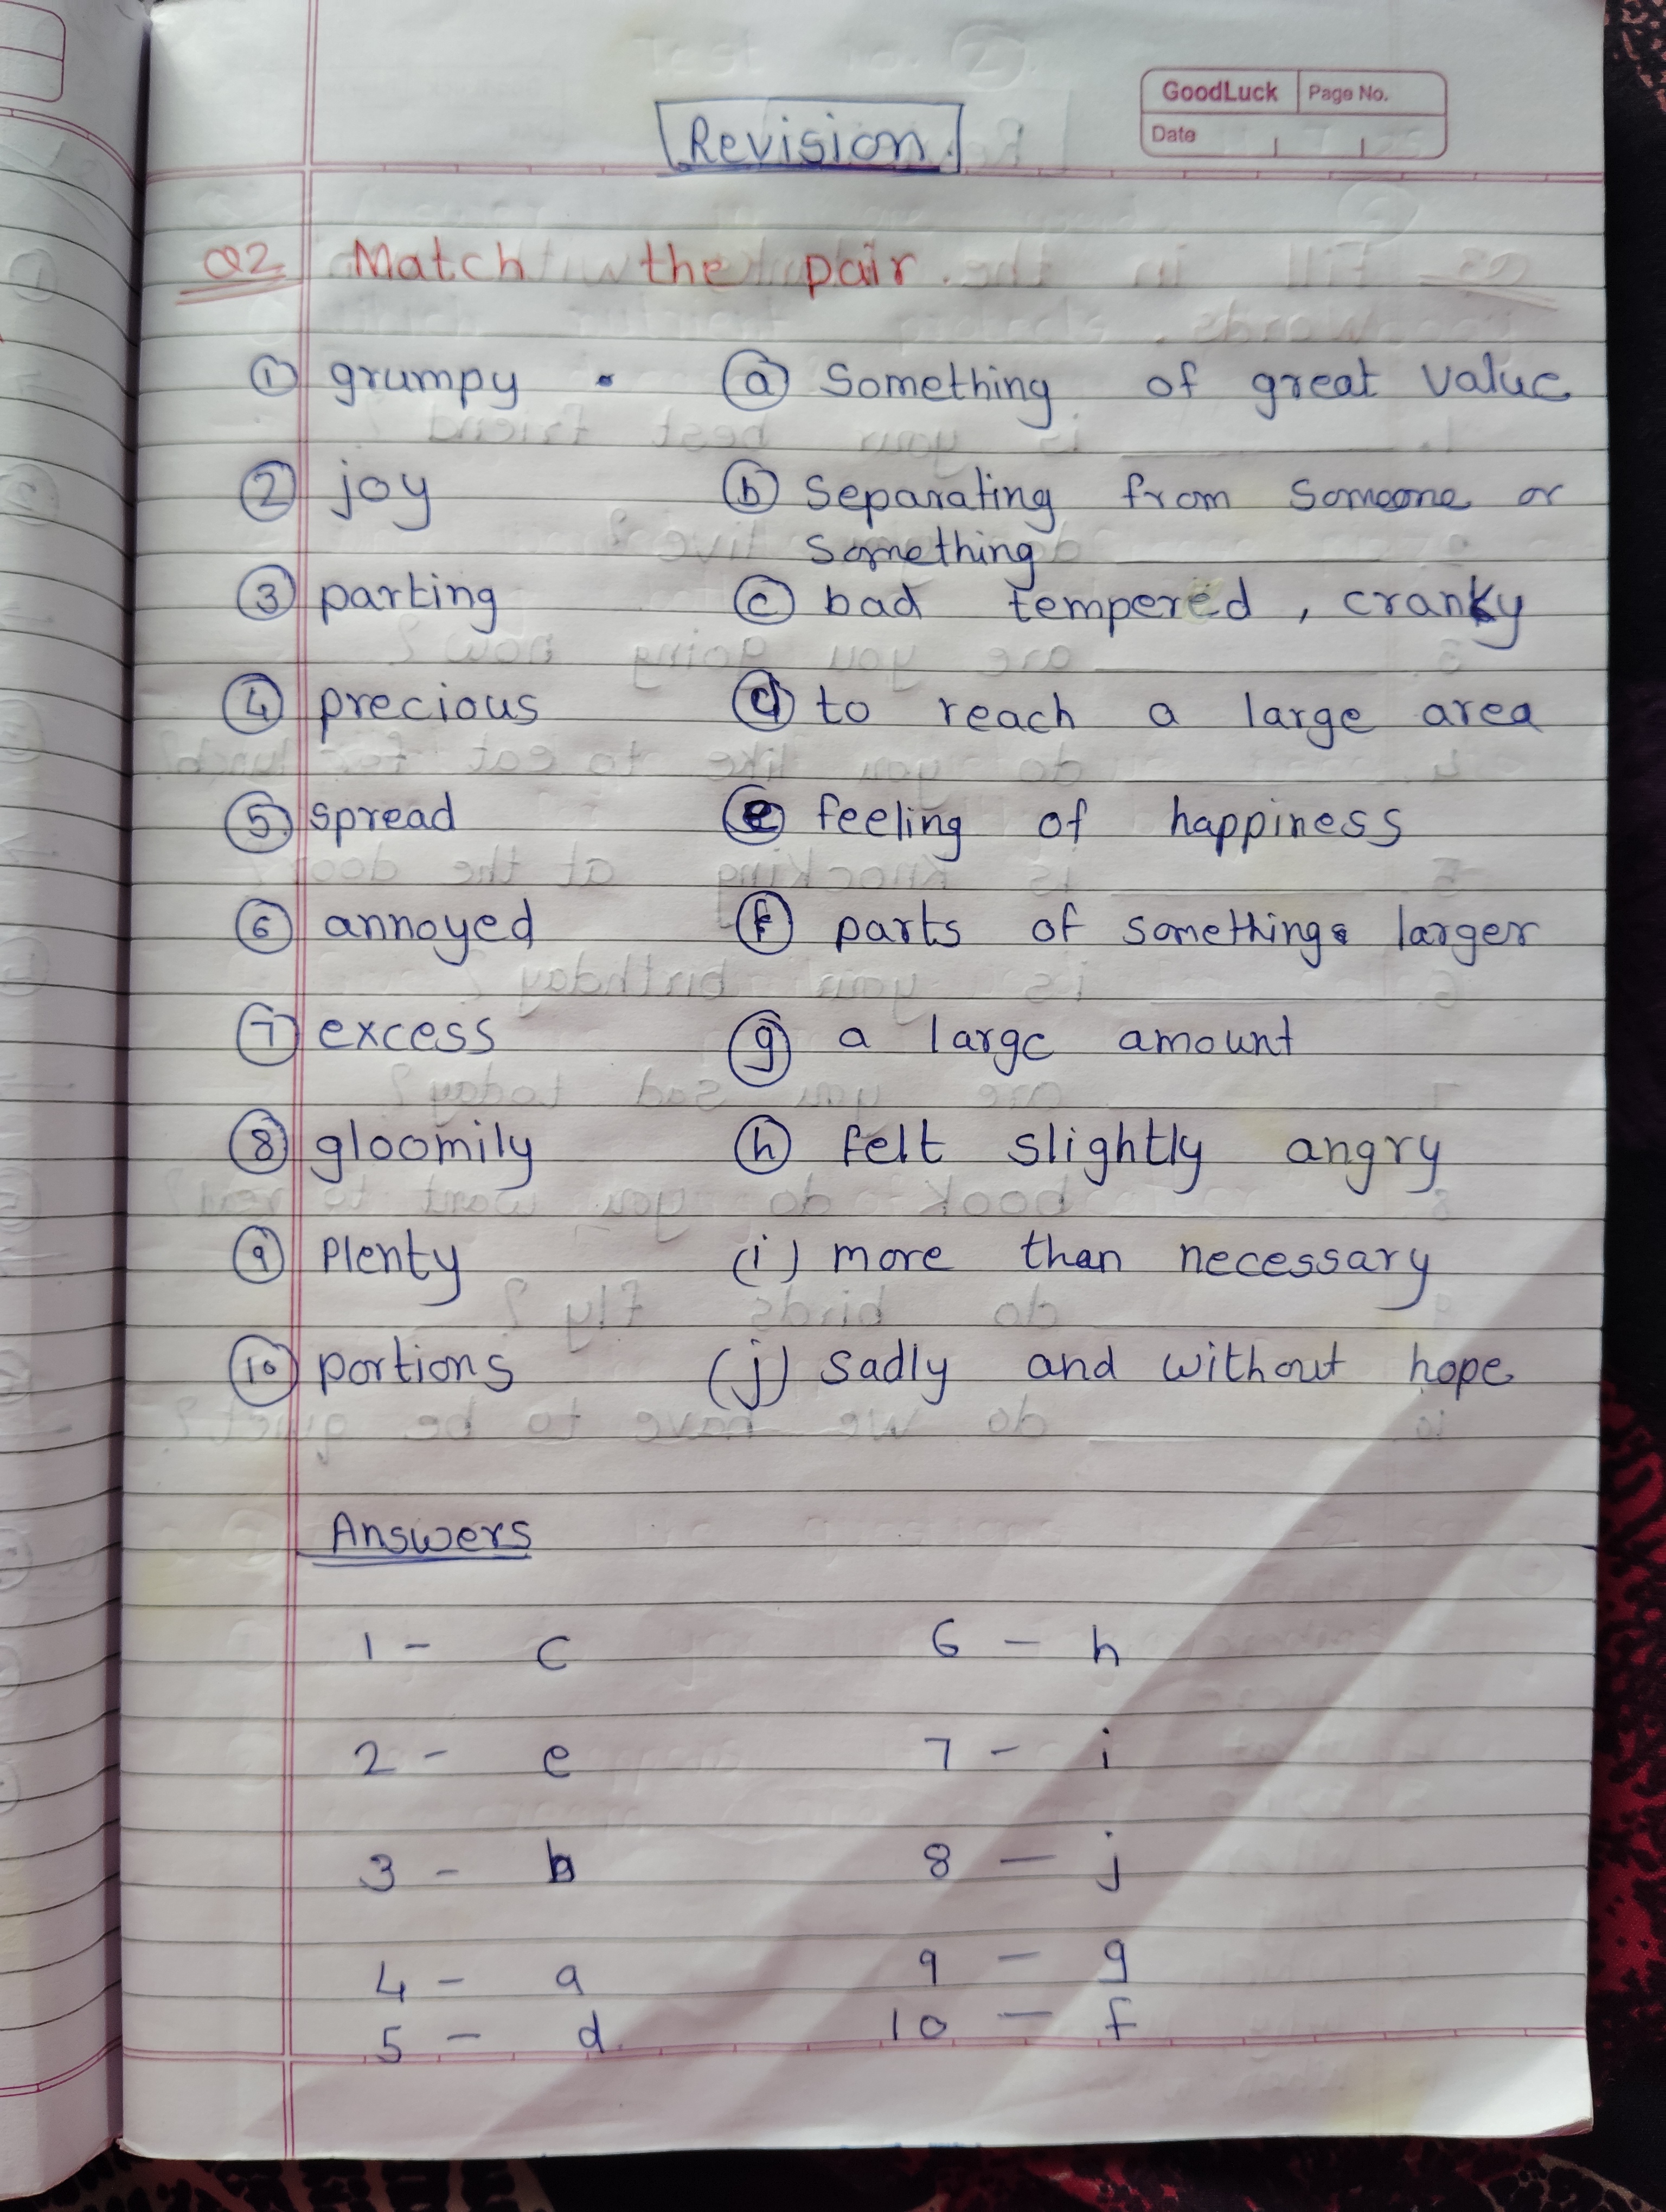 GoodLuck Page No.
Date
Revision.
Q2 Match the pair.
1 grumpy a Something of great value
2 joy b Separating from someone or
something
3 parting c bad tempered, cranky
4 precious d to reach a large area
5 spread e feeling of happiness
6 annoyed f parts of something larger
7 excess g a large amount
8 gloomily h felt slightly angry
9 Plenty (i) more than necessary
10 portions (j) sadly and without hope
Answers
1 - c 6 - h
2 - e 7 - i
3 - b 8 - j
4 - a 9 - g
5 - d. 10 - f